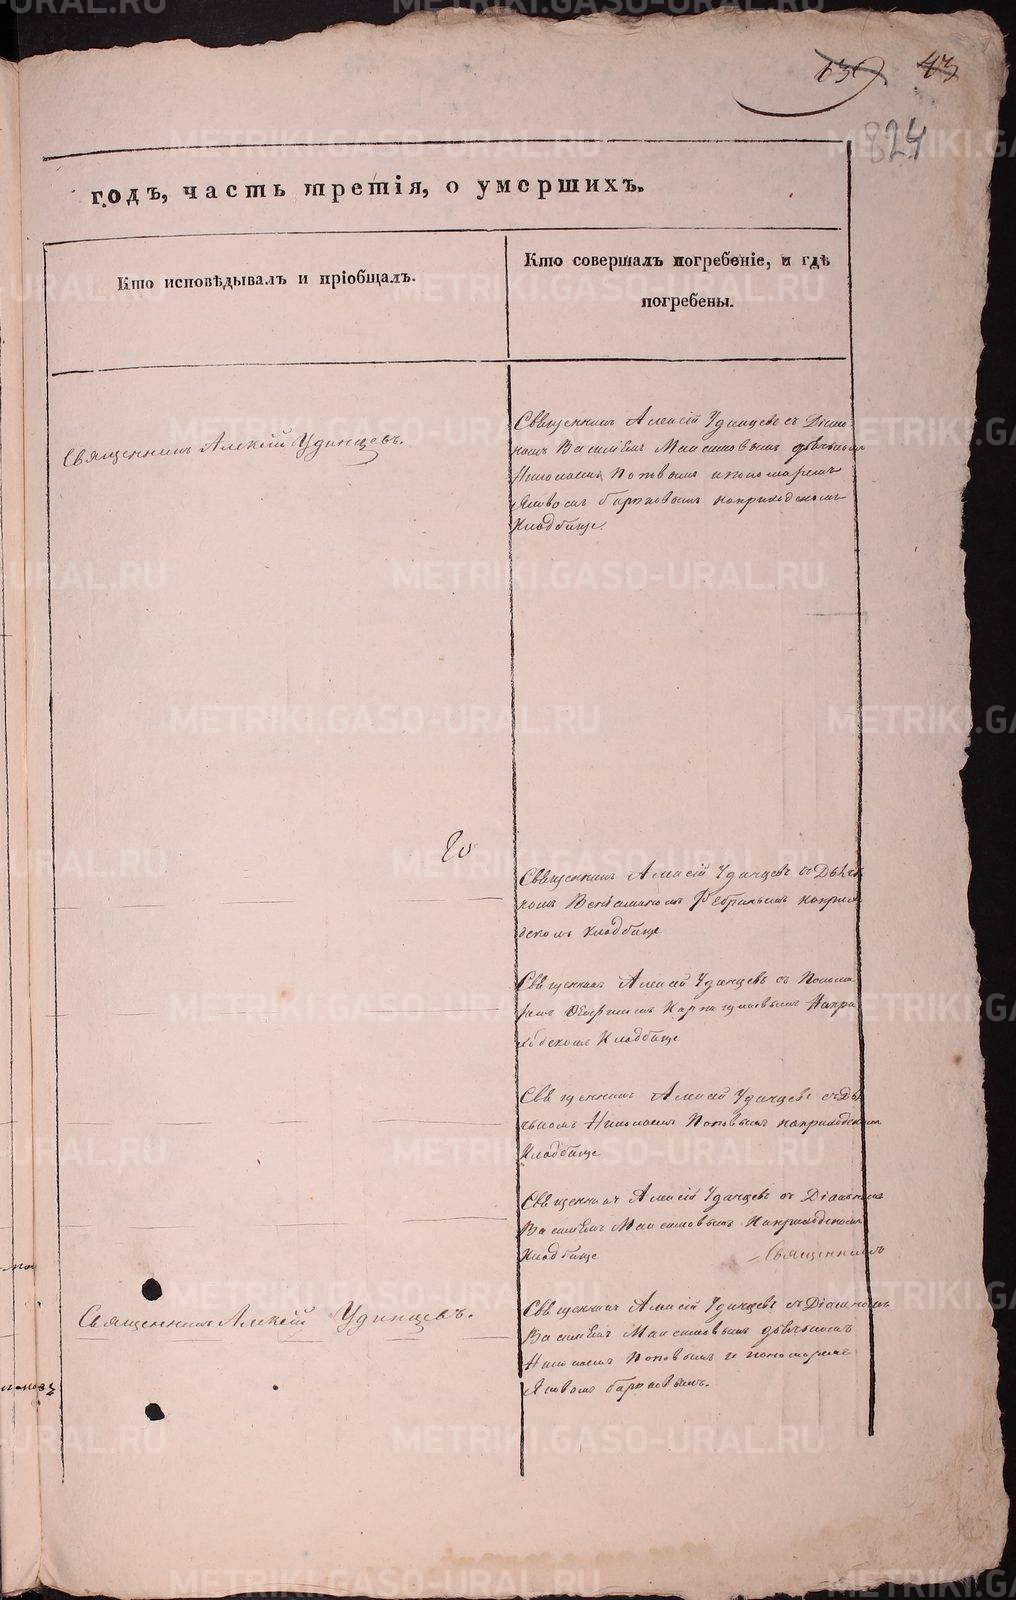 43
824
годъ, часть третія, о умершихъ.
Кто исповѣдывалъ и пріобщалъ.
Кто совершалъ погребеніе, и гдѣ
погребены.
Священникъ Алексій Удинцевъ.
Священникъ Алексій Удинцевъ съ Діако-
номъ Василіем Максимовымъ дьячкомъ
Николаемъ Поповымъ и пономаремъ
Яковомъ на приходскомъ
Кладбище.
Священникъ Алексій Удинцевъ съ Дьяч-
комъ на прихо
дскомъ Кладбище
Священникъ Алексій Удинцевъ съ Понома-
ремъ На при
Кладбище
Священникъ Алексій Удинцевъ съ Дья
чкомъ Николаемъ Поповымъ на приходскомъ
Кладбище
Священникъ Алексій Удинцевъ съ Діакономъ
Василіем Максимовымъ На приходскомъ
Кладбище
Священникъ
Священникъ Алексій Удинцевъ.
Священникъ Алексій Удинцевъ съ Діакономъ
Василіем Максимовымъ дьячкомъ
Николаемъ Поповымъ и пономаремъ
Яковомъ
METRIKI.GASO-URAL.RU